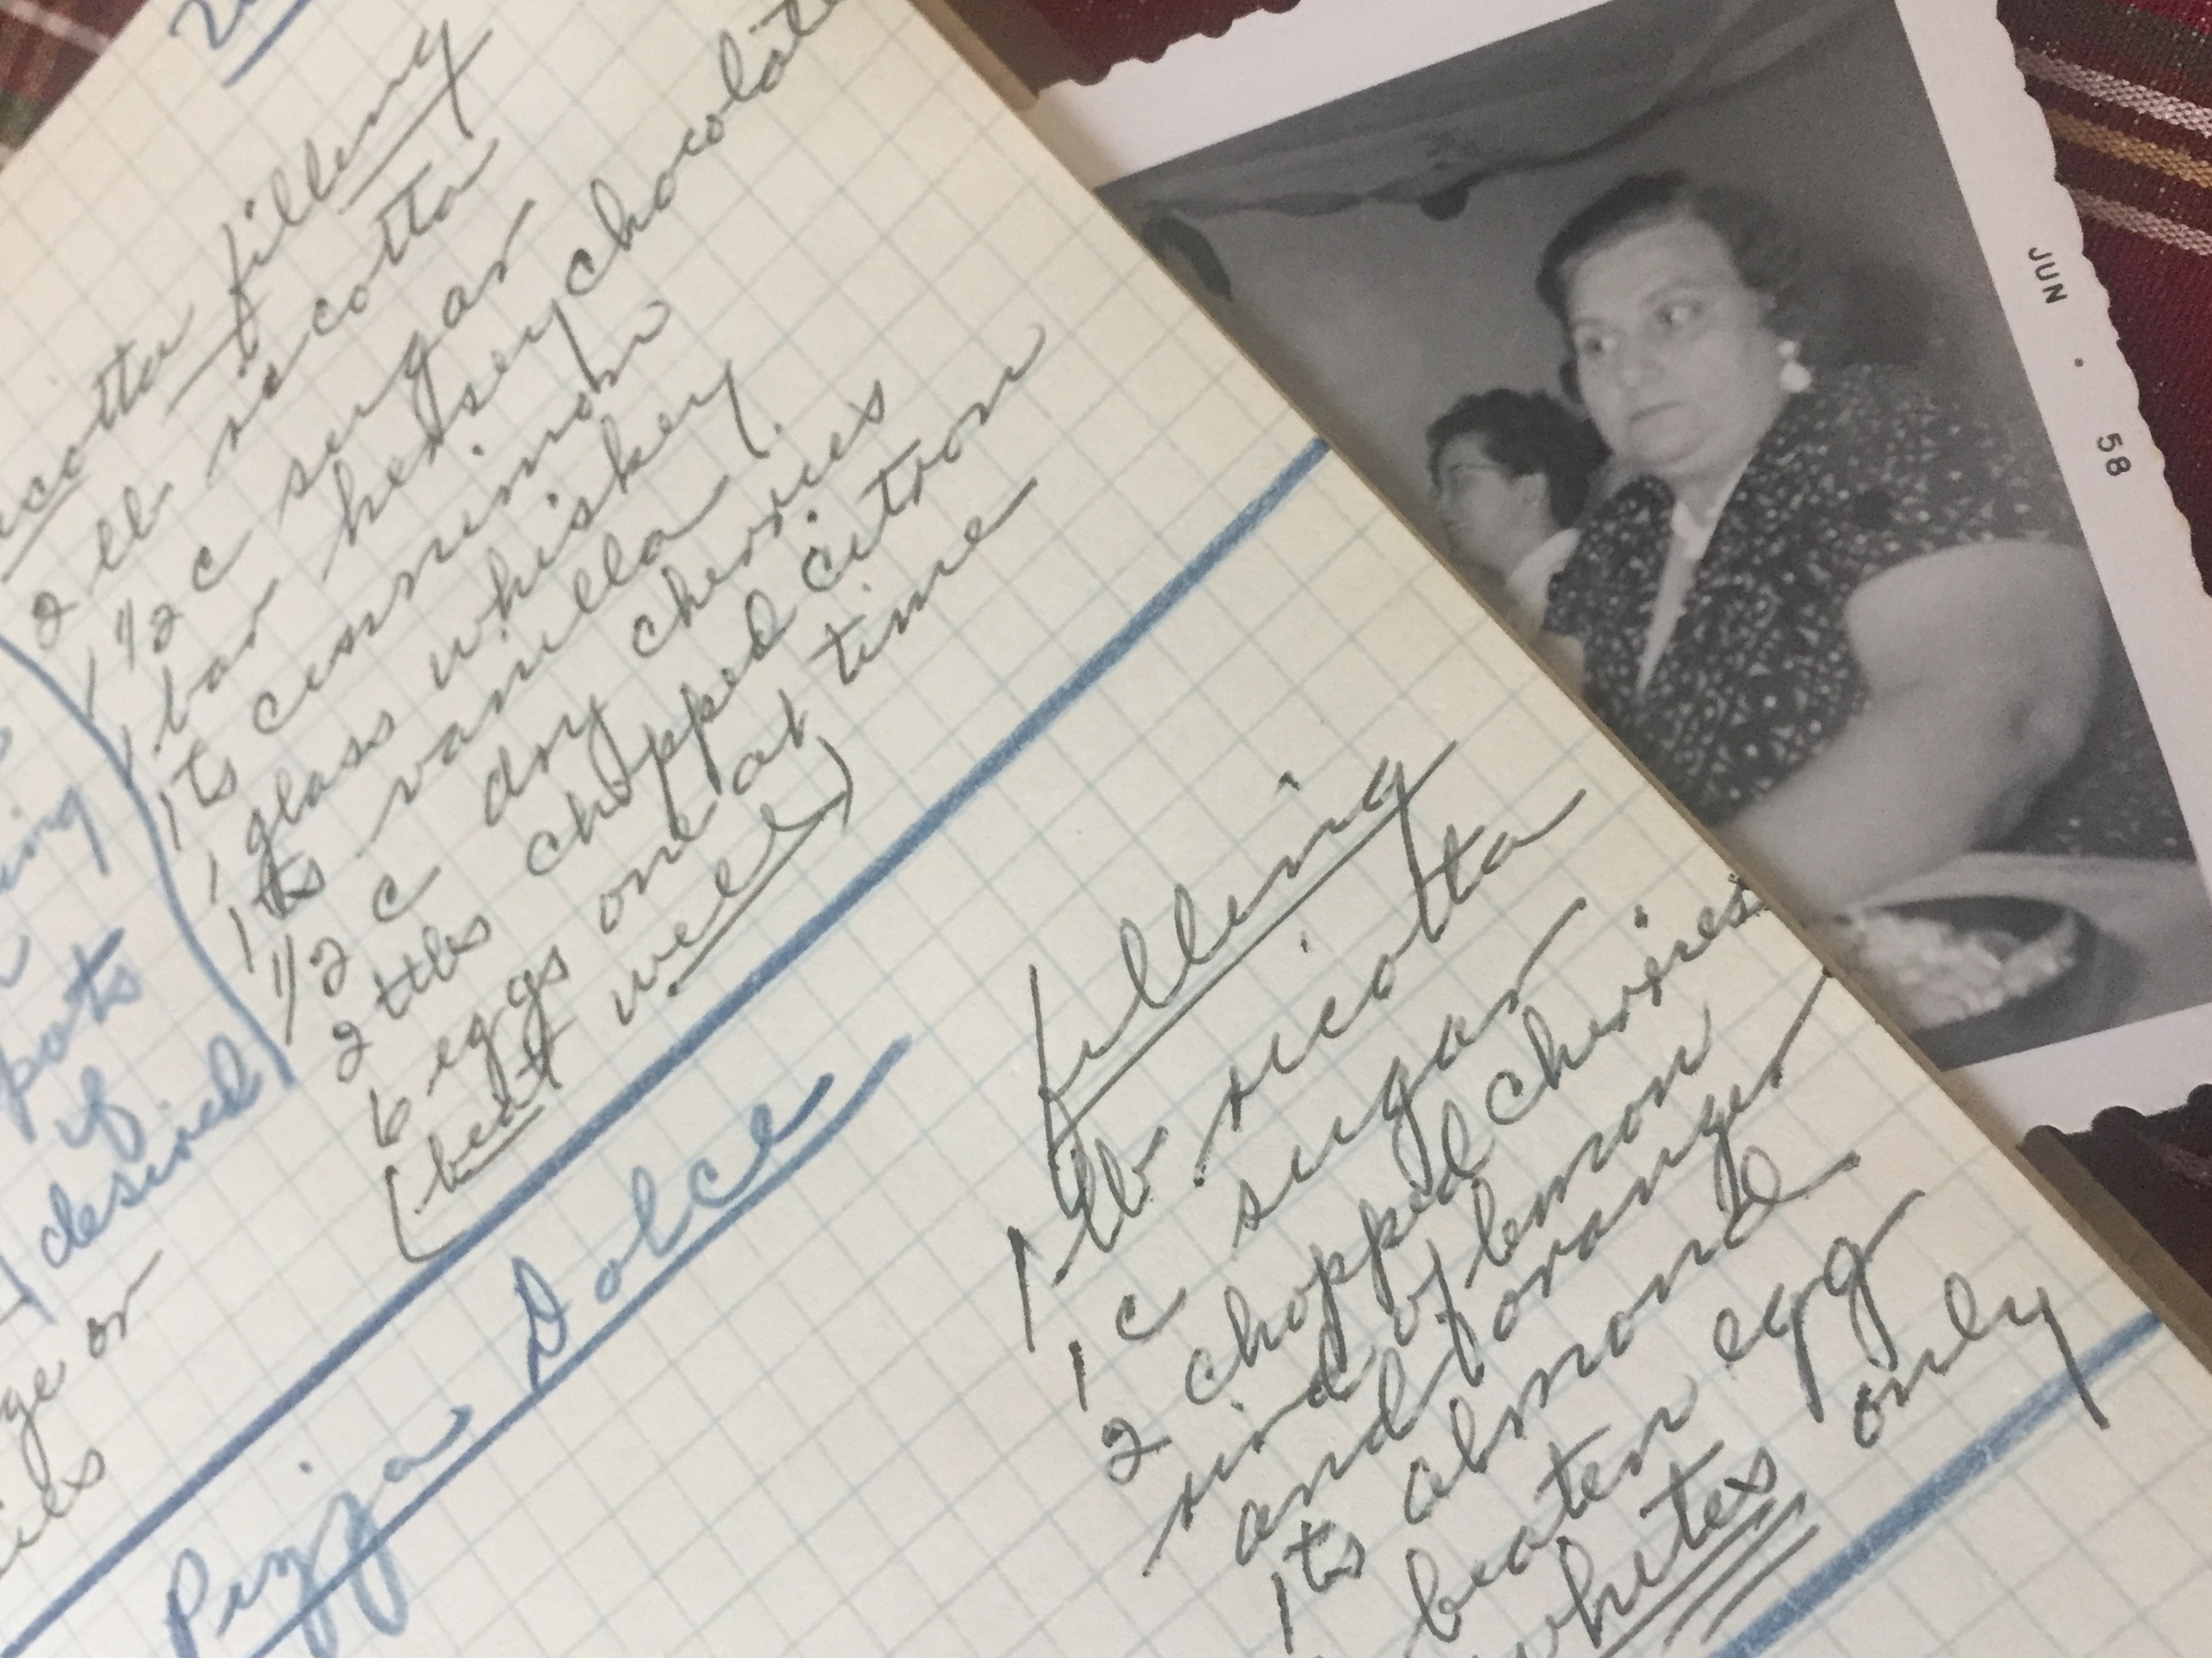 ricotta filling
2 lb ricotta
1 1/2 c sugar
1 bar hersey chocolate
1 ts cinnimon
1 glass whiskey
1 ts vanilla
1/2 c dry cherries
2 tbls chopped citron
6 eggs one at time
(beat well)
ing
pots
if
desired
or
Pizza Dolce
filling
1 lb ricotta
1 c sugar
2 chopped cherries
rind of lemon
and orange
1 ts almond
beaten egg
whites only
JUN • 58